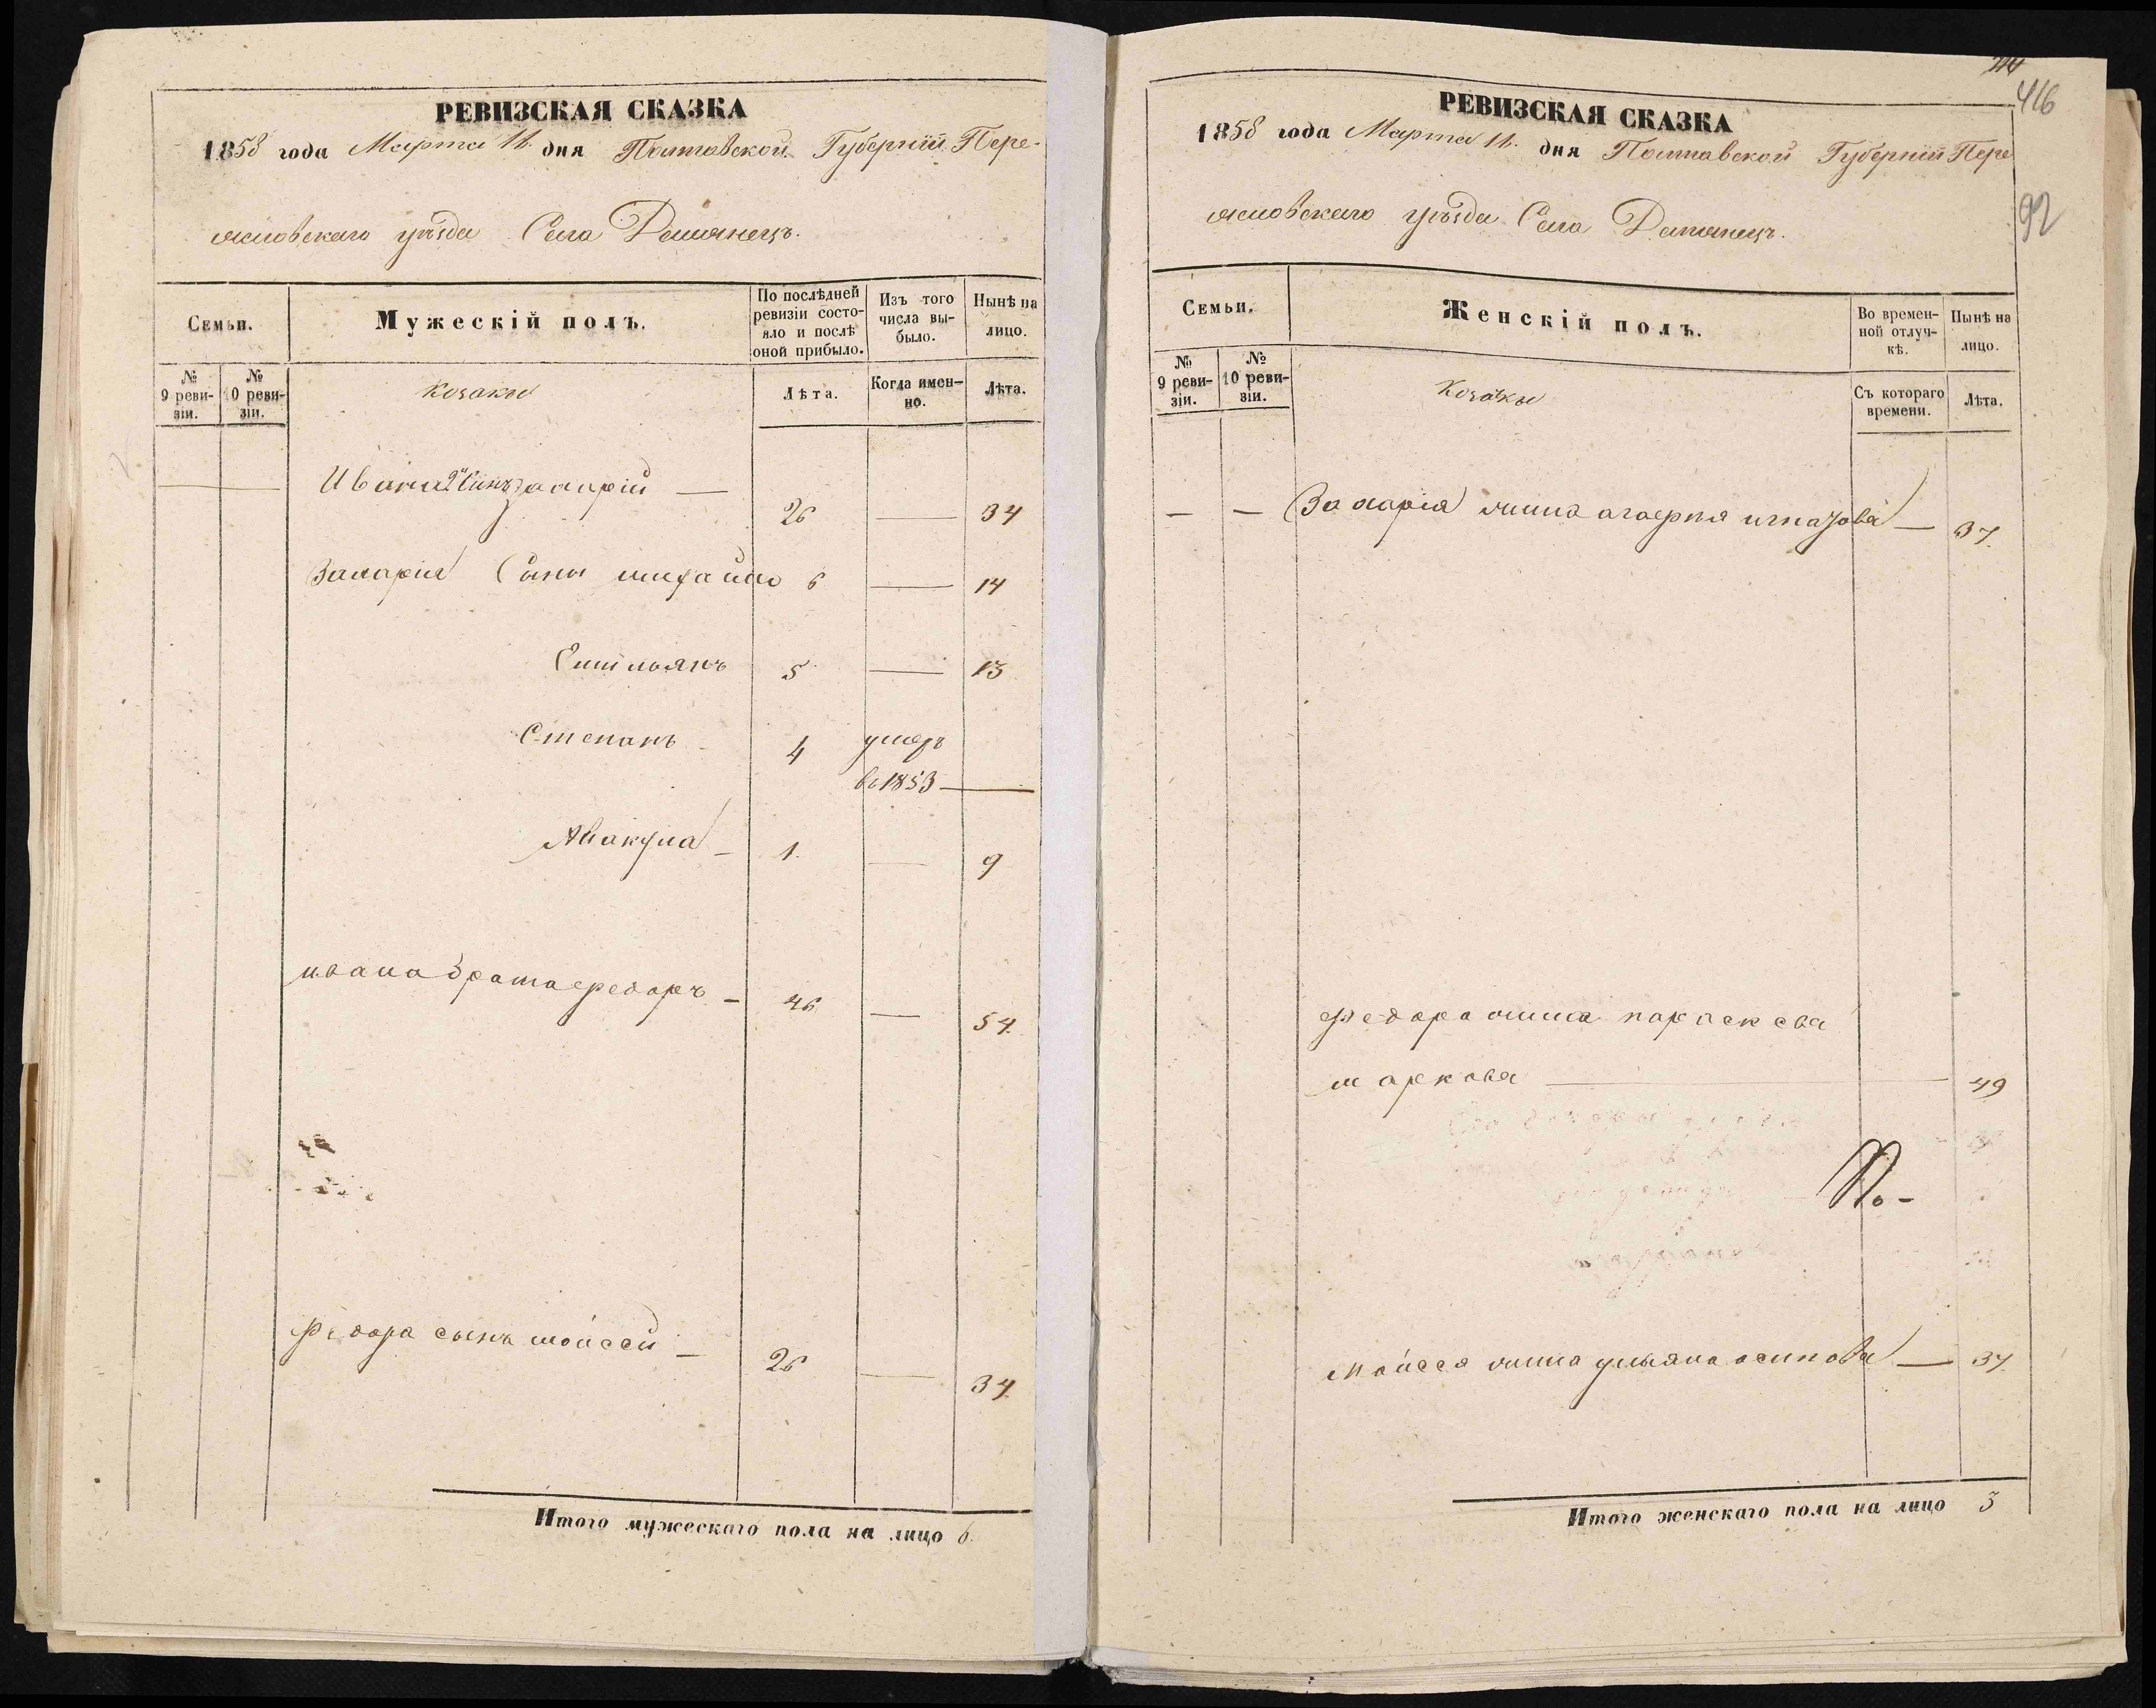 РЕВИЗСКАЯ СКАЗКА
1858 года Марта 11. дня Полтавской Губернии Пере-
яславскаго уѣзда Села Демянецъ.
Семьи.
Мужескій полъ.
По послѣдней ревизіи состо-яло и послѣ оной прибыло.
Изъ того числа вы-было.
Нынѣ на лицо.
№ 9 реви-зіи.
№ 10 реви-зіи.
Козаки
Лѣта.
Когда имен-но.
Лѣта.
Ивана 2й сынъ Захарій — 26 — 34
Захарія Сыны михайло 6 — 14
Емильянъ 5 — 13
Степанъ 4 умеръ
въ 1853 —
Авакума — 1. — 9
ивана брата федоръ — 46 — 54.
федора сынъ мойсей — 26 — 34.
Итого мужескаго пола на лицо 6.
416
92
РЕВИЗСКАЯ СКАЗКА
1858 года Марта 11. дня Полтавской Губернии Пере
яславскаго уѣзда Села Демянецъ.
Семьи.
Женскій полъ.
Во времен-ной отлуч-кѣ.
Нынѣ на лицо.
№ 9 реви-зіи.
№ 10 реви-зіи.
Козачки
Съ котораго времени.
Лѣта.
— — Захарія жина агафия игнатова — 37.
федора жина параскева
маркова — 49
По-
Мойсея жина ульяна осипова — 37.
Итого женскаго пола на лицо 3